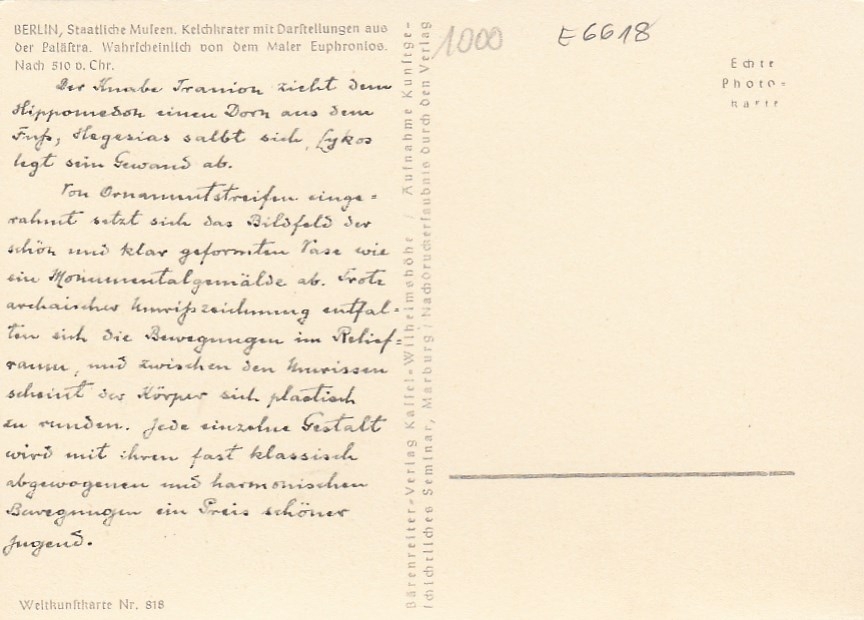 BERLIN, Staatliche Museen. Kelchkrater mit Darstellungen aus
der Palästra. Wahrscheinlich von dem Maler Euphronios.
Nach 510 v. Chr.
Der Knabe Tranion zieht dem
Hippomedon einen Dorn aus dem
Fuß; Hegesias salbt sich, Lykos
legt sein Gewand ab.
Von Ornamentstreifen einge=
rahmt setzt sich das Bildfeld der
schön und klar geformten Vase wie
ein Monumentalgemälde ab. Trotz
archaischer Umrißzeichnung entfal=
ten sich die Bewegungen im Relief=
raum, und zwischen den Umrissen
scheint der Körper sich plastisch
zu runden. Jede einzelne Gestalt
wird mit ihren fast klassisch
abgewogenen und harmonischen
Bewegungen ein Preis schöner
Jugend.
Weltkunstkarte Nr. 818
Bärenreiter-Verlag Kassel-Wilhelmshöhe / Aufnahme Kunstge-
schichtliches Seminar, Marburg / Nachdruckerlaubnis durch den Verlag
1000
E6618
Echte
Photo-
karte